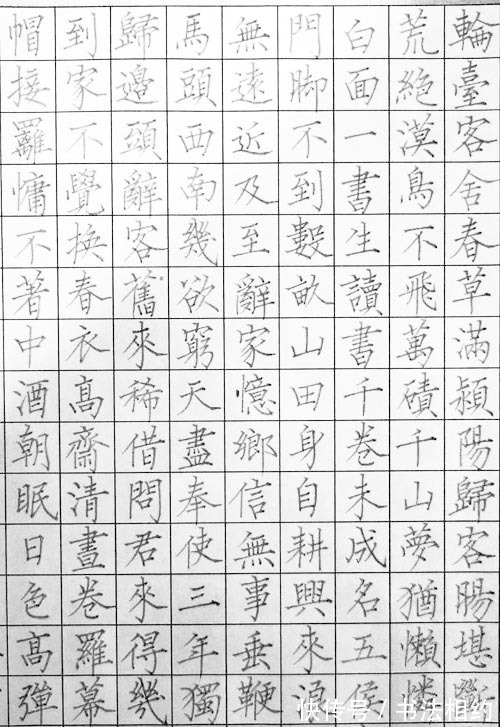 輪臺客舍春草滿潁陽歸客腸堪斷
荒絕漠鳥不飛萬磧千山夢猶懶憐
白面一書生讀書千卷未成名五侯
門脚不到數畝山田身自耕興來浪
無遠近及至辭家憶鄉信無事垂鞭
馬頭西南幾欲窮天盡奉使三年獨
歸邊頭辭客舊來稀借問君來得幾
到家不覺換春衣高齋清晝卷羅幕
帽接䍦慵不著中酒朝眠日色高彈
快传号 / 书法相约